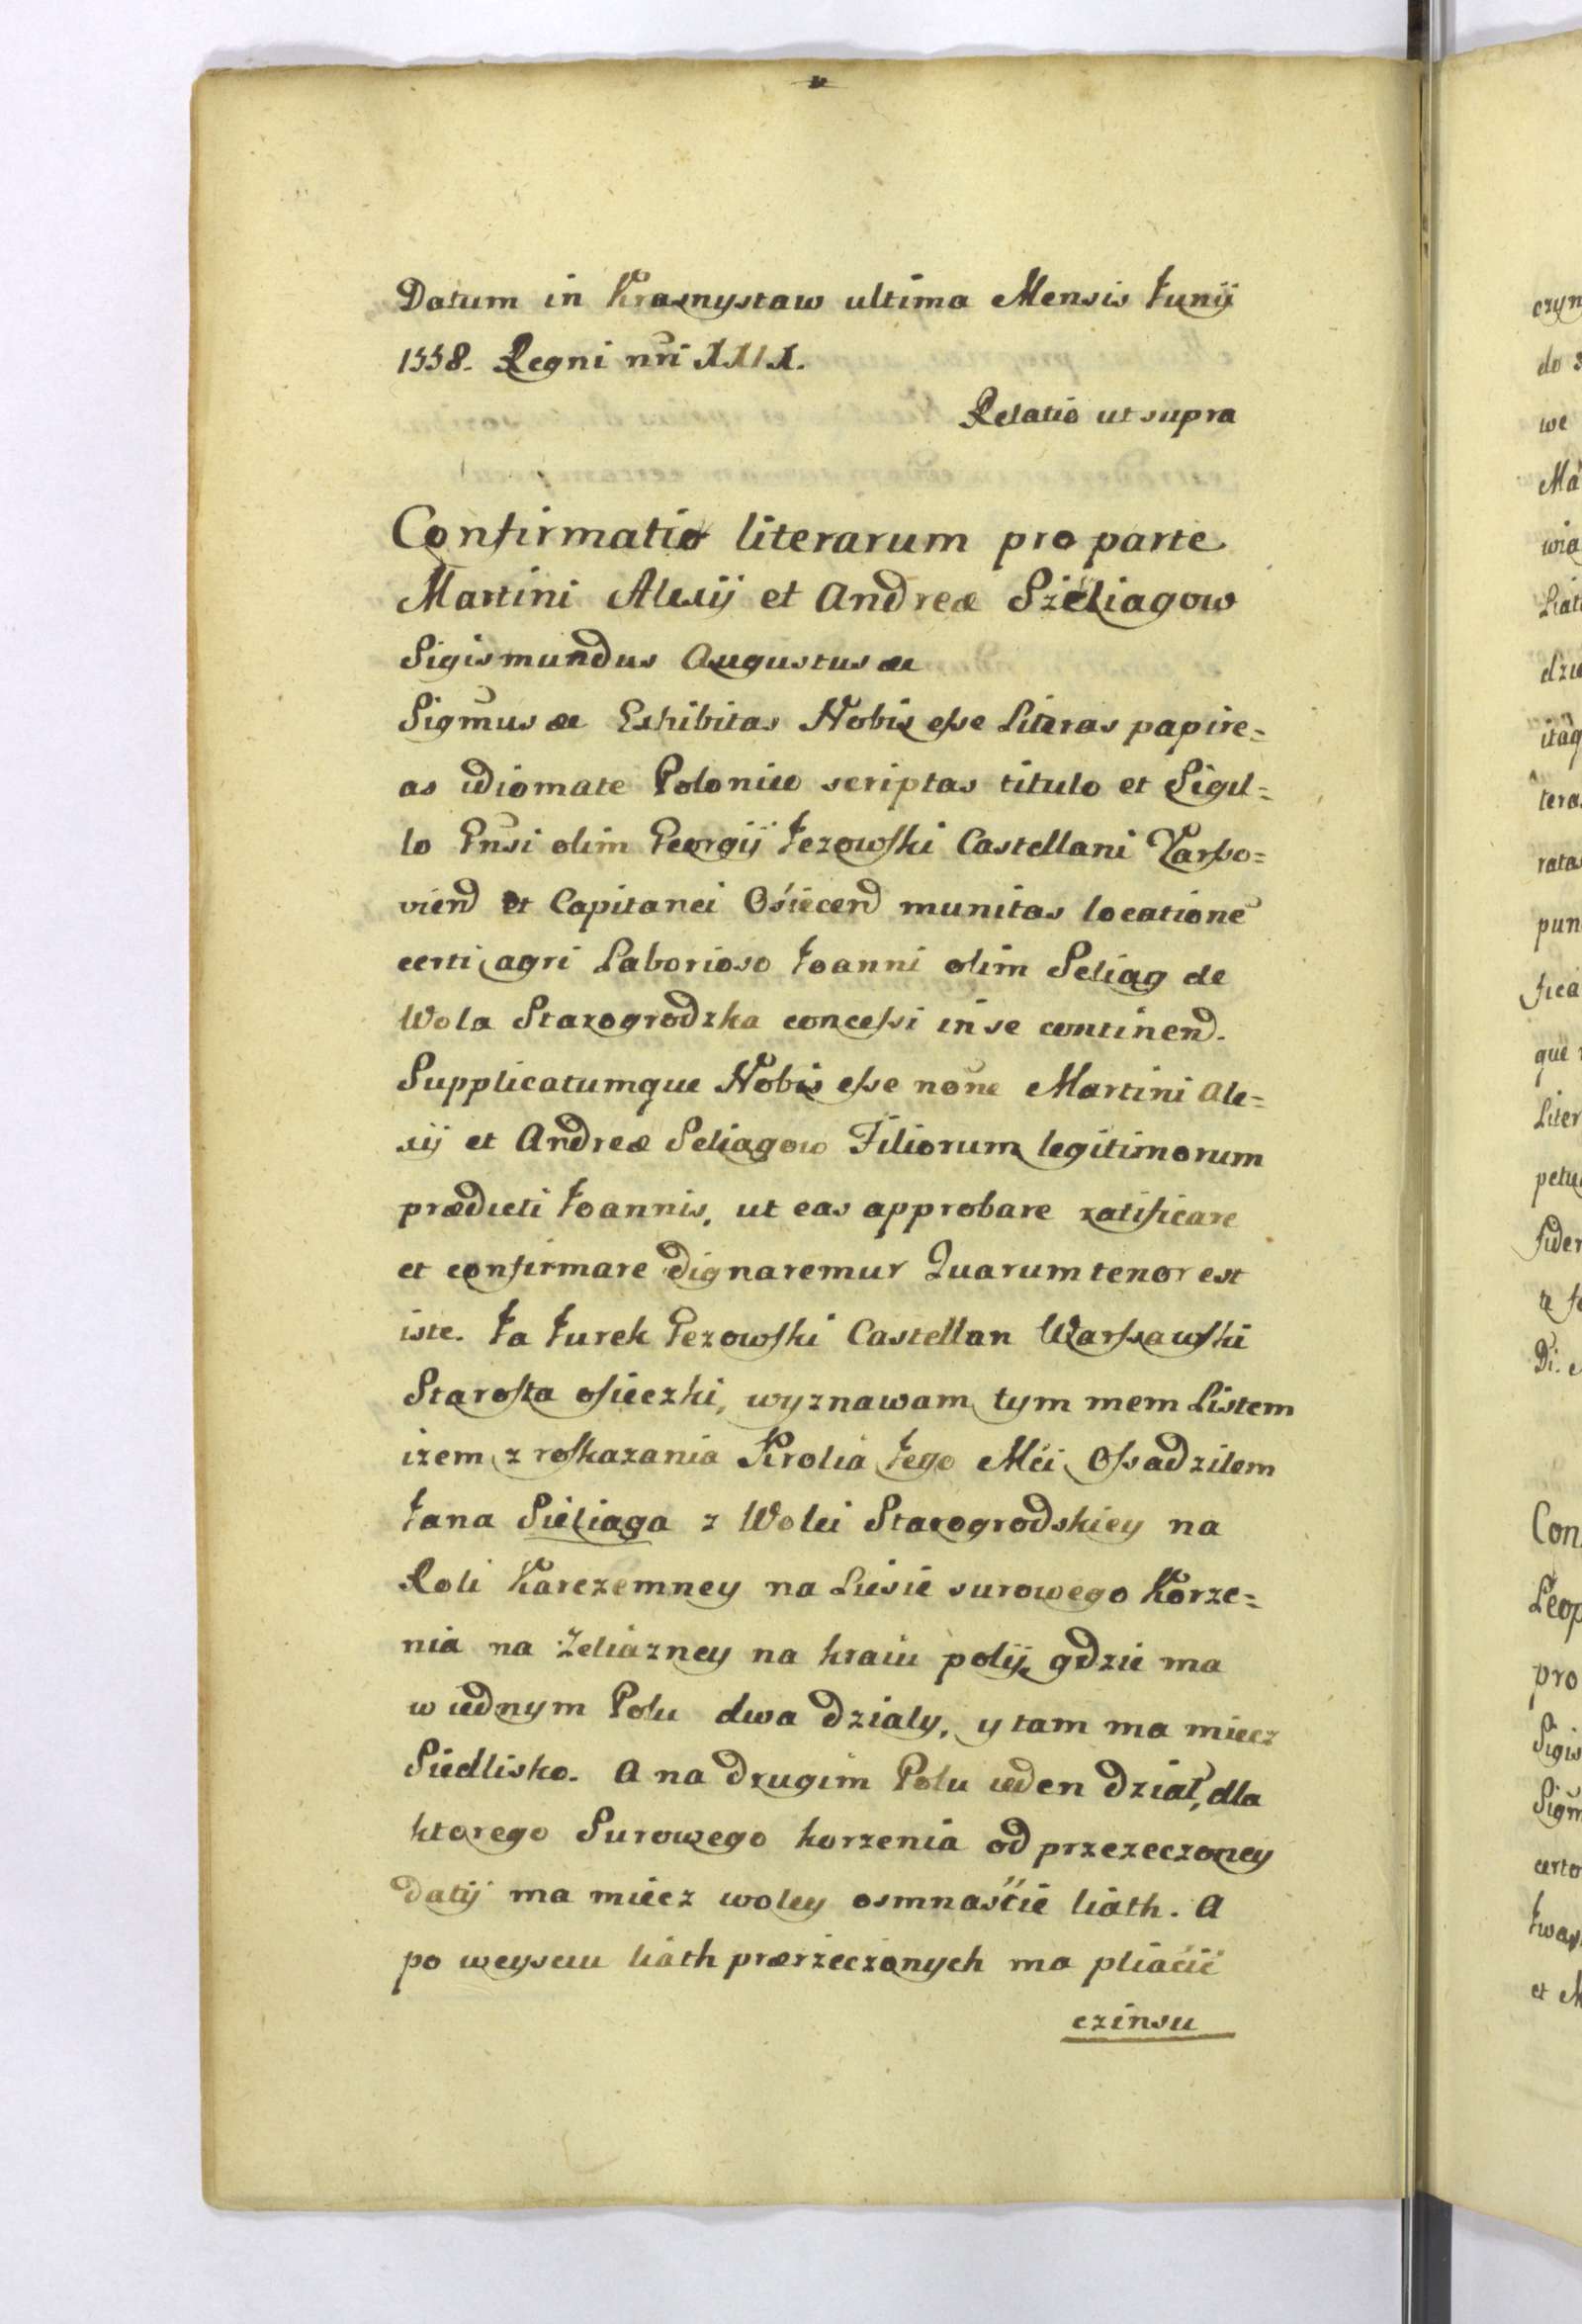 Datum in Krasnystaw ultima Mensis Junÿ
1558. Regni nri XXIX.
Relatio ut supra
Confirmatio literarum pro parte
Martini Alexÿ et Andreæ Szeliagow
Sigismundus Augustus æ
Sigmus æ Exhibitas Nobis eſse Literas papire=
as idiomate Polonico scriptas titulo et Sigil=
lo Gnsi olim Georgÿ Jezowſki Castellani Varſso=
vien et Capitanei Osiecen munitas locatione
certi agri Laborioso Joanni olim Seliag de
Wola Starogrodzka conceſsi in se continen.
Supplicatumque Nobis eſse none Martini Ale=
xÿ et Andreæ Seliagow Filiorum legitimorum
prædicti Joannis, ut eas approbare ratificare
et confirmare dignaremur Quarum tenor est
iste. Ja Jurek Jezowſki Castellan Warſsawſki
Staroſta oſieczki, wyznawam tym mem Listem
izem z roſkazania Krolia Jego Mći Oſsadzilem
Jana Sieliaga z Wolei Starogrodskiey na
Roli Karczemney na Liesie surowego Korze=
nia na Zeliazney na kraiu polÿ gdzie ma
w iednym Polu dwa dzialy, y tam ma miecz
Siedlisko. A na drugim Polu ieden dział, dla
ktorego Surowego korzenia od przezeczoney
datÿ ma miecz woley osmnaście liath. A
po weysciu liath przerzeczonych ma pliacić
czinsu